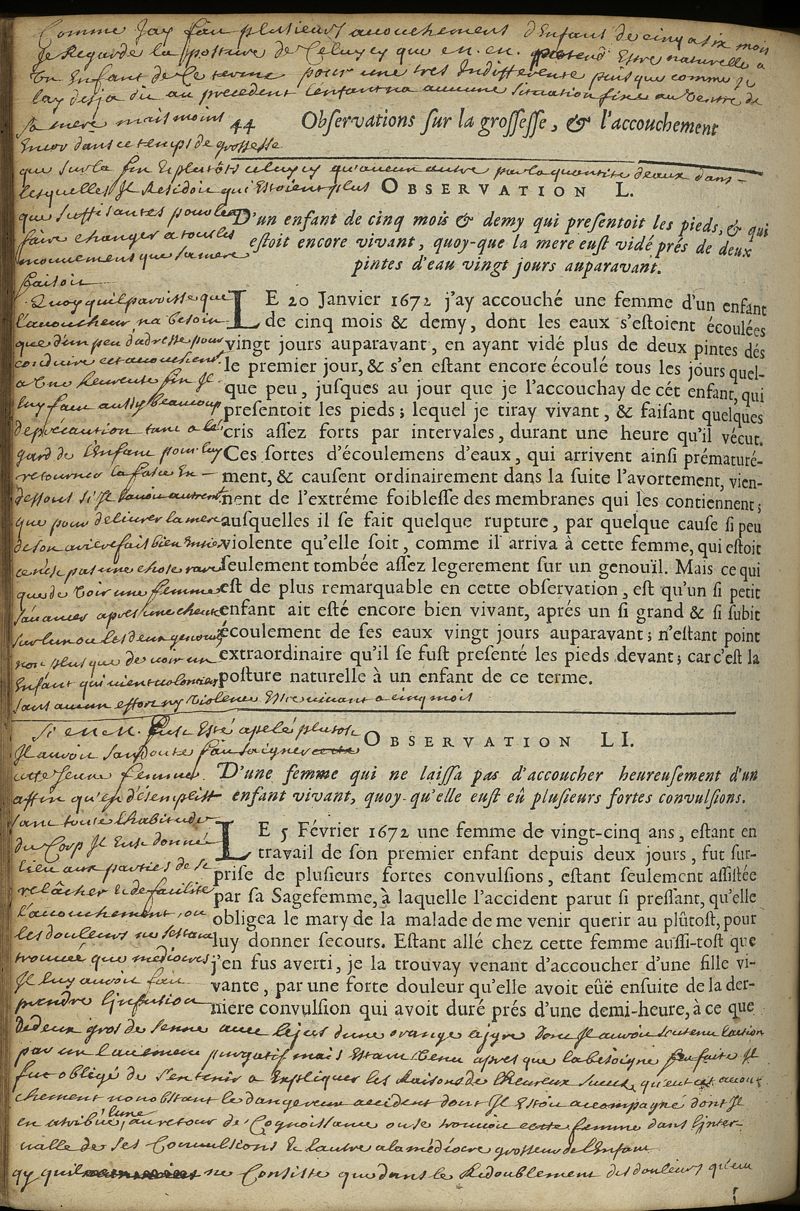 Comme Jay fait plusieurs accouchement d'Enfant de cinq a six mois
Je Regarde la posture de Celuycy que en. en. pretend Estre naturelle a
Un Enfant de Ce terme pour une tres Indifferente puis que comme je
lay desja dit au precedent lenfant na aucune situation fixe au Ventre de
Sa mere mais moins
Encor dans ce temps de grossesse
que sur la fin Et plutôts celuycy qu'aucun autre par la quantité deaux dans
lesquelles Jl Residoit qui Estoient plus
que suffisantes pour le
faire changer a tous les
mouvements que sa mere
faisoit
44 Obſervations ſur la groſſeſſe, & l'accouchement
OBSERVATION L.
D'un enfant de cinq mois & demy qui preſentoit les pieds, & qui
eſtoit encore vivant, quoy-que la mere euſt vidé prés de deux
pintes d'eau vingt jours auparavant.
LE 20 Janvier 1672 j'ay accouché une femme d'un enfant
de cinq mois & demy, dont les eaux s'eſtoient écoulées
vingt jours auparavant, en ayant vidé plus de deux pintes dés
le premier jour, & s'en eſtant encore écoulé tous les jours quel-
que peu, juſques au jour que je l'accouchay de cét enfant, qui
preſentoit les pieds; lequel je tiray vivant, & faiſant quelques
cris aſſez forts par intervales, durant une heure qu'il vécut.
Ces ſortes d'écoulemens d'eaux, qui arrivent ainſi prématuré-
ment, & cauſent ordinairement dans la ſuite l'avortement, vien-
nent de l'extréme foibleſſe des membranes qui les contiennent;
auſquelles il ſe fait quelque rupture, par quelque cauſe ſi peu
violente qu'elle ſoit, comme il arriva à cette femme, qui eſtoit
ſeulement tombée aſſez legerement ſur un genoüil. Mais ce qui
eſt de plus remarquable en cette obſervation, eſt qu'un ſi petit
enfant ait eſté encore bien vivant, aprés un ſi grand & ſi ſubit
écoulement de ſes eaux vingt jours auparavant; n'eſtant point
extraordinaire qu'il ſe fuſt preſenté les pieds devant; car c'eſt la
poſture naturelle à un enfant de ce terme.
Quoy quil paroisse que
l'accoucheur na besoin
que d'un peu d'adresse pour
conduire cet accouchement
a Une heureuse fin Jl
luy faut aussy beaucoup
de précaution tant a les
gard de l'Enfant pour luy
retourner la face En
dessous si Jl lavoit autrem
que pour delivrer la mere
de son arierefait bien Entier
ce nest pas une chose rare
que de Voir une femme
apres une cheute
sur lun ou les deux genoux
non plus que de voir un
Enfant qui vient
sans aucun effort ny Violence Estre vivant a cinq mois
OBSERVATION LI.
D'une femme qui ne laiſſa pas d'accoucher heureuſement d'un
enfant vivant, quoy-qu'elle euſt eû pluſieurs fortes convulſions.
LE 5 Février 1672 une femme de vingt-cinq ans, eſtant en
travail de ſon premier enfant depuis deux jours, fut ſur-
priſe de pluſieurs fortes convulſions, eſtant ſeulement aſſiſtée
par ſa Sagefemme, à laquelle l'accident parut ſi preſſant, qu'elle
obligea le mary de la malade de me venir querir au plûtoſt, pour
luy donner ſecours. Eſtant allé chez cette femme auſſi-toſt que
j'en fus averti, je la trouvay venant d'accoucher d'une fille vi-
vante, par une forte douleur qu'elle avoit eûë enſuite de la der-
niere convulſion qui avoit duré prés d'une demi-heure, à ce que
Si en en. Eust Esté apelé plutost
Jl auroit sans doute fait saigner
cette jeune femme
affin qu'en désemplist
sant toute l'habitude
du Corp Jl Eust donné
lieu aux parties de se
relâcher & de facilité
l'accouchement, ou
les douleurs ne sestant
trouvée que médiocres
Jl luy auroit fait
prendre l'infusion
de deux gros de senne avec le jus dune orange aigre dont Jl auroit soutenu laction
par un lavement purgatif mais Estant Venu apres que la besoigne fut faite Jl
fut obligé de s'entenir a Expliquer les Raisons de l'heureux succes qu'eut cet accou
chement nonobstant le dangereux accident dont Jl Estoit accompagné dont Jl
en atribue l'une au retour de Cognoissance ou se trouvoit cette femme dans l'inter
valle de ses Convulsions Et l'autre a la médiocre grosseur de l'Enfant
qui ne Consiste que dans le Redoublement des douleurs